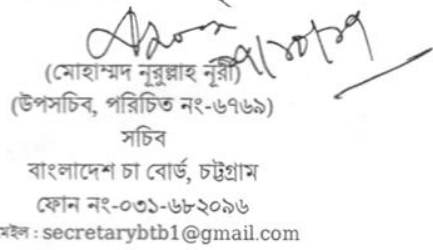 (মোহাম্মদ নূরুল্লাহ নূরী)
(উপসচিব, পরিচিত নং-৬৭৬৯)
সচিব
বাংলাদেশ চা বোর্ড, চট্টগ্রাম
ফোন নং-০৩১-৬৮২০৯৬
মেইল : secretarybtb1@gmail.com